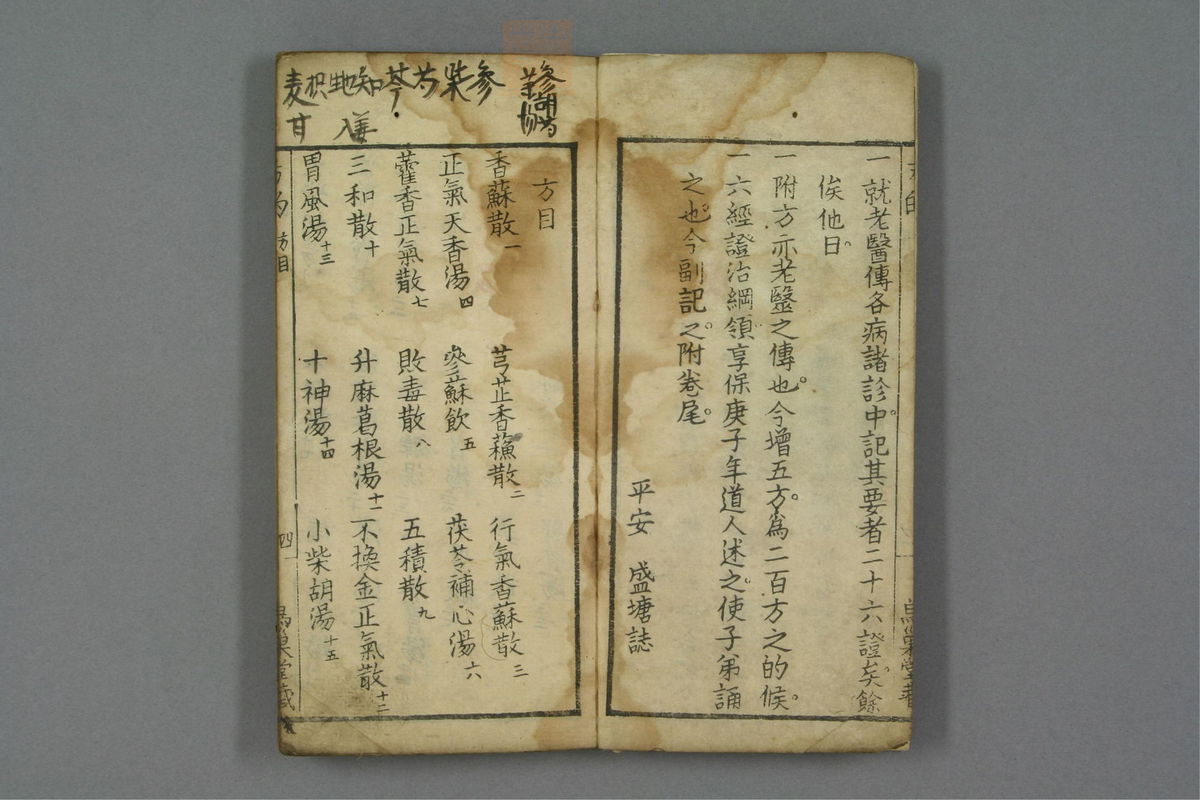 一就老醫傳各病諸診中。記其要者二十六證矣。餘
俟他日。
一附方亦老醫之傳也。今增五方。為二百方之的候。
一六經證治綱領享保庚子年道人述之。使子弟誦
之也。今副記之。附卷尾。
平安 盛塘誌
方目
香蘇散一 芎芷香蘓散二 行氣香蘇散三
正氣天香湯四 參蘇飲五 茯苓補心湯六
藿香正氣散七 敗毒散八 五積散九
三和散十 升麻葛根湯十一 不換金正氣散十二
胃風湯十三 十神湯十四 小柴胡湯十五
方目
四
参柴芍芩知地枳麦
姜入 甘